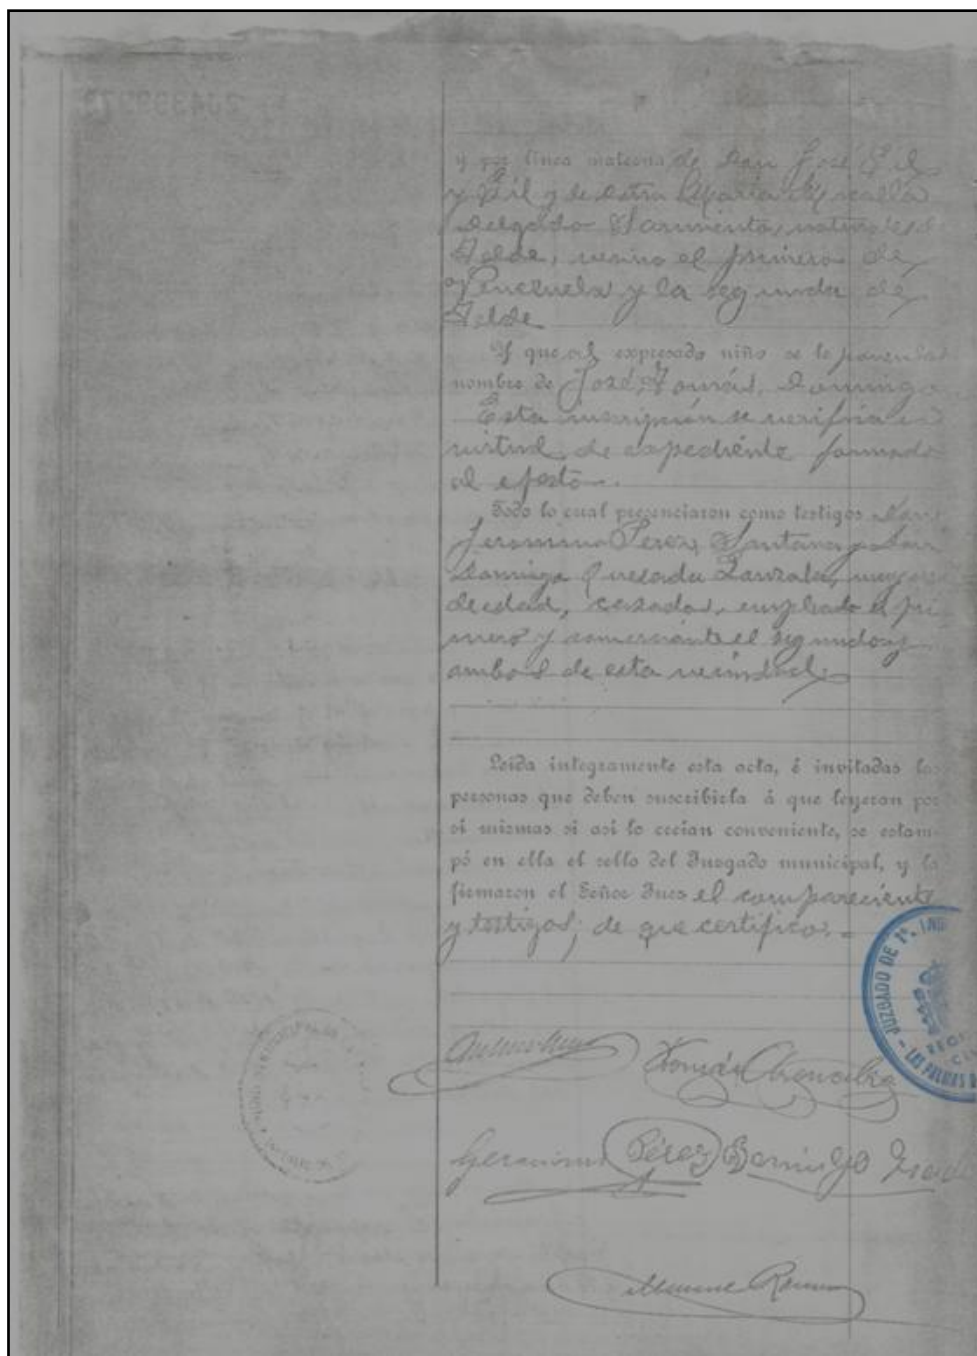 y por línea materna de Don José Gil
y Gil y de Doña María
Delgado Sarmiento, naturales de
Telde, vecino el primero de
Venezuela y la segunda de
Telde
Y que al expresado niño se le
nombre de José, Tomás, Domingo
Esta inscripción se verifica en
virtud de expediente formado
al efecto.
Todo lo cual presenciaron como testigos Don
Jeronimo Perez Santana y Don
Domingo Quesada mayores
de edad, casados, empleado el pri
mero y comerciante el segundo y
ambos de esta vecindad
Leída íntegramente esta acta, é invitadas las
personas que deben suscribirla á que leyeran por
sí mismas si así lo creían conveniente, se estam
pó en ella el sello del Juzgado municipal, y la
firmaron el Señor Juez el compareciente
y testigos; de que certifico.=
JUZGADO DE 1ª. INS
LAS PALMAS D
Tomás
Geronimo Pérez Domingo